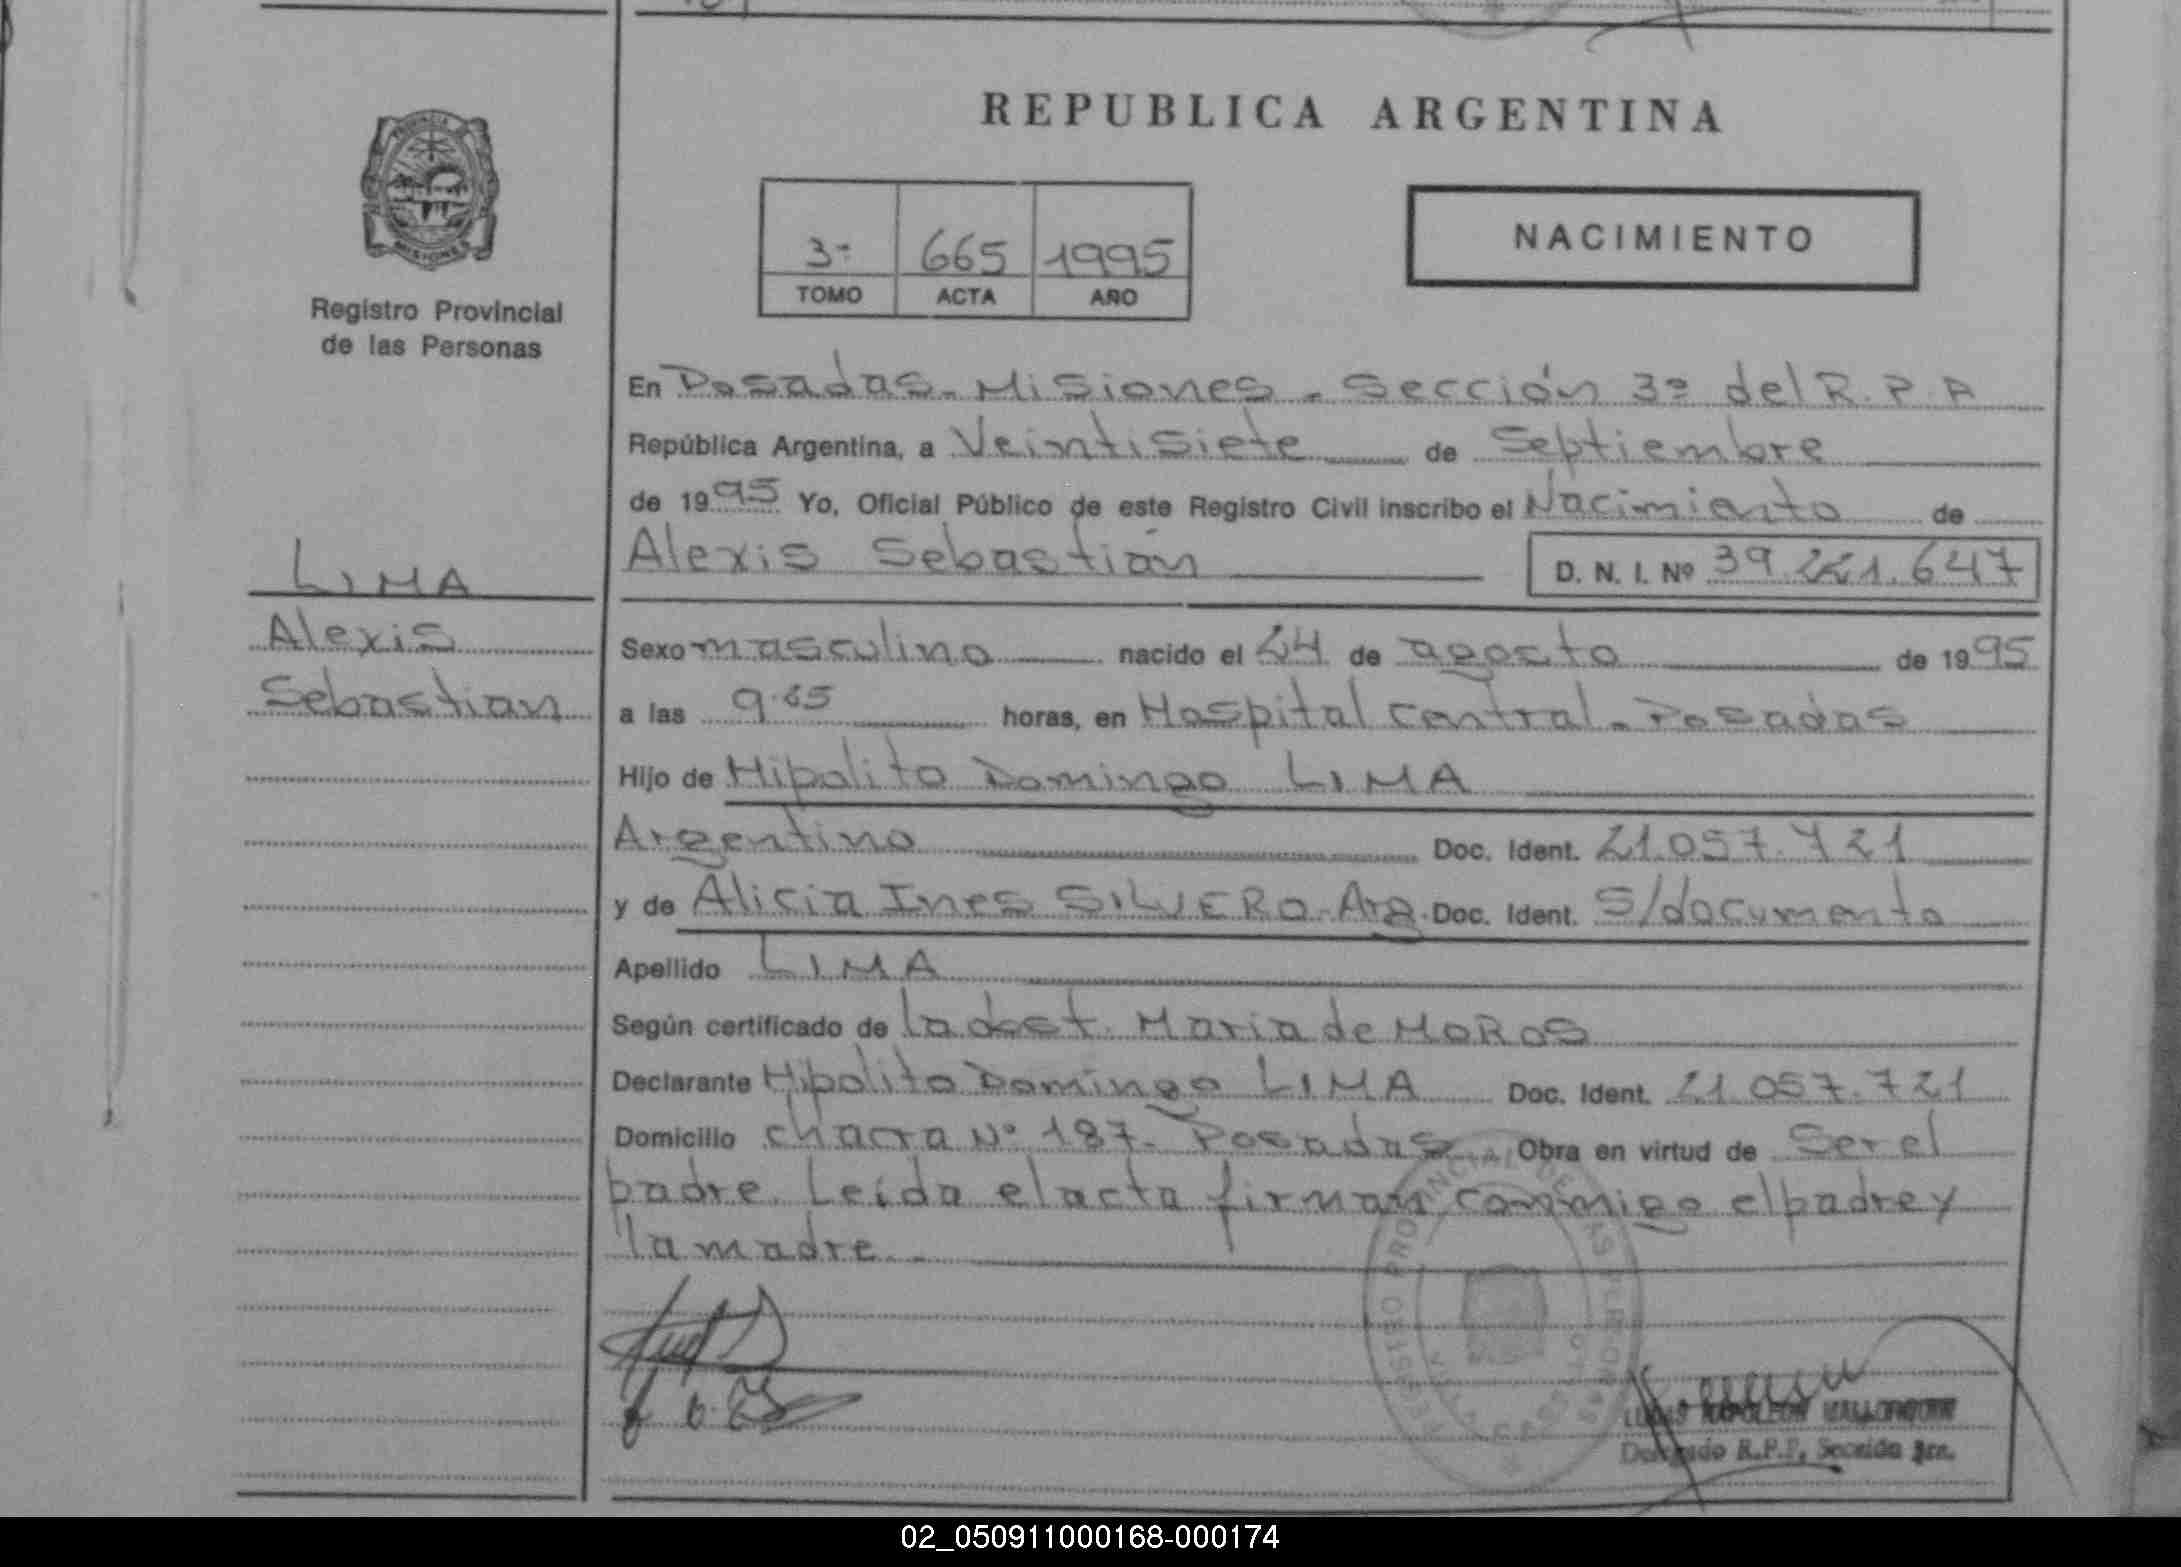 REPUBLICA ARGENTINA
PROVINCIA
MISIONES
Registro Provincial
de las Personas
3ª 665 1995
TOMO ACTA AÑO
NACIMIENTO
En Posadas - Misiones - Sección 3ª del R.P.P
República Argentina, a Veintisiete de Septiembre
de 1995 Yo, Oficial Público de este Registro Civil inscribo el Nacimiento de
LIMA
Alexis Sebastián D. N. I. Nº 39.221.647
Alexis
Sebastian
Sexo masculino nacido el 24 de agosto de 1995
a las horas, en Hospital Central - Posadas
Hijo de Hipolito Domingo LIMA
Argentino Doc. Ident. 21.057.721
y de Alicia Ines SILVERO - Arg. Doc. Ident. S/documento
Apellido LIMA
Según certificado de la obst. Maria de MOROS
Declarante Hipolito Domingo LIMA Doc. Ident. 21.057.721
Domicilio chacra Nº 187 - Posadas Obra en virtud de Ser el
padre. Leída el acta firman conmigo el padre y
la madre.
REGISTRO PROVINCIAL DE LAS PERSONAS
Delegado R.P.P. Sección 3ra.
02_050911000168-000174